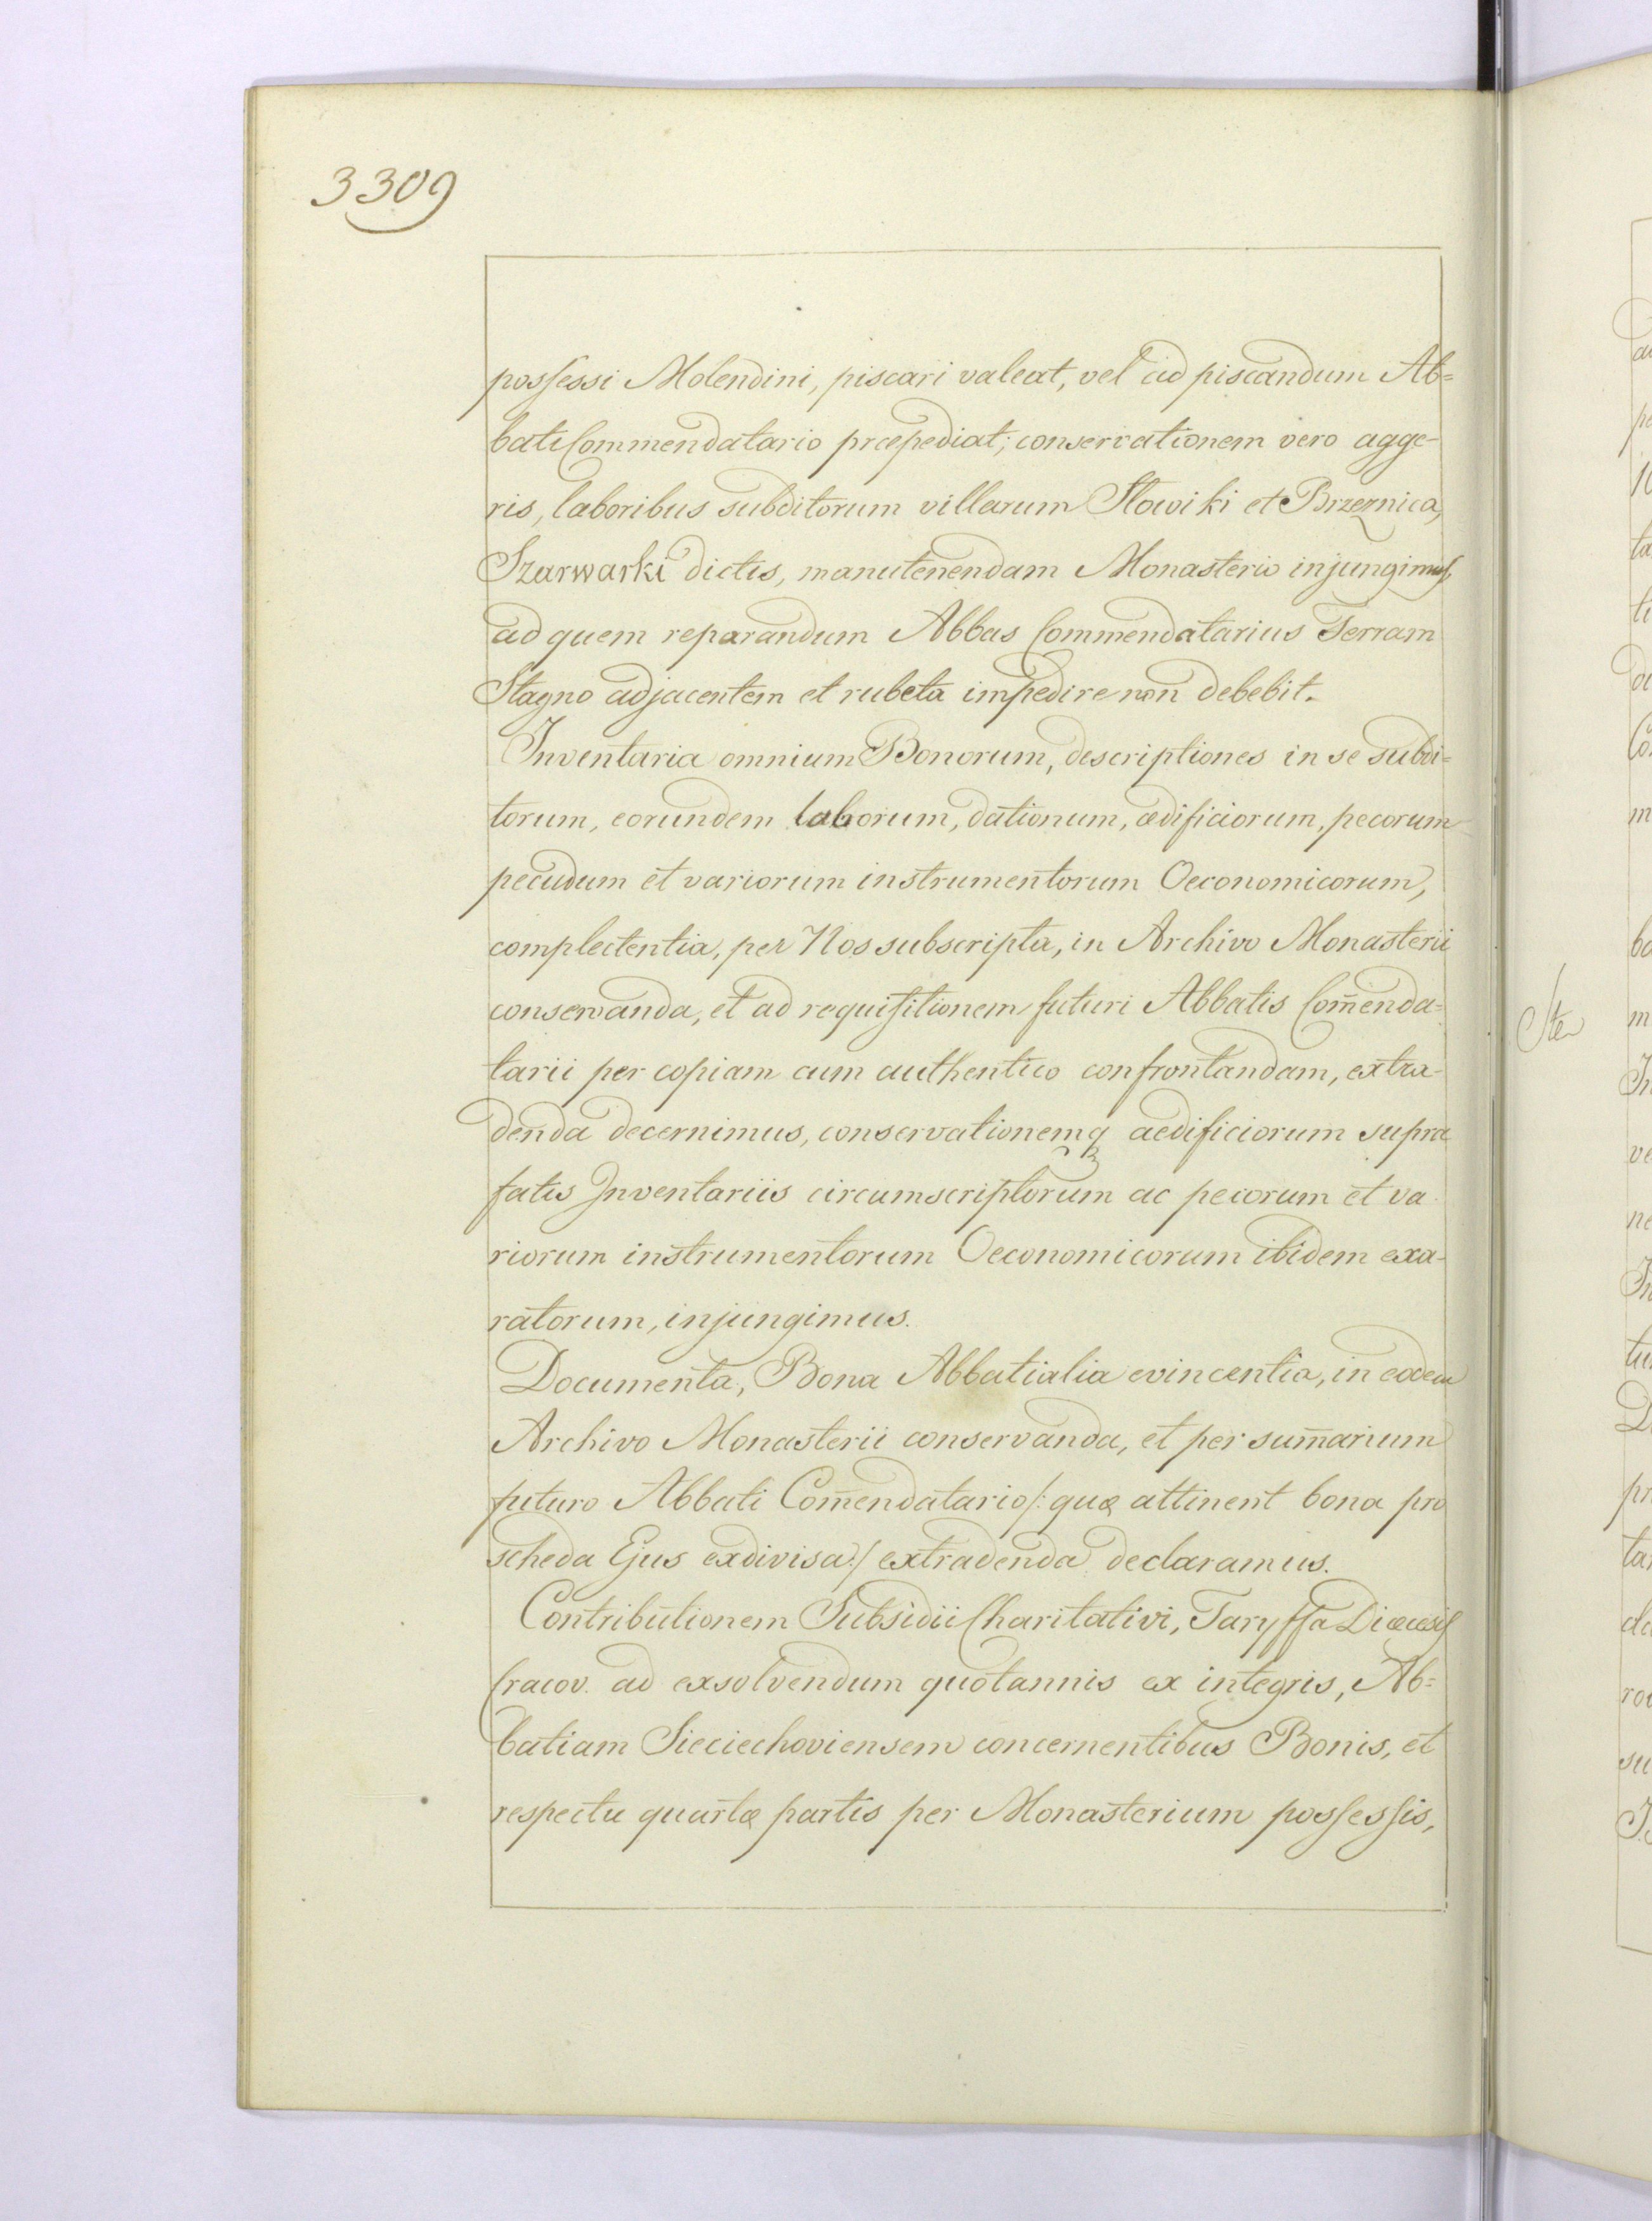 3309
possessi Molendini, piscari valeat, vel ad piscandum Ab=
bati Commendatario præpediat; conservationem vero agge-
ris, laboribus subditorum villarum Słowiki et Brzeznica,
Szarwarki dictis, manutenendam Monasterio injungimus,
ad quem reparandum Abbas Commendatarius Terram
Stagno adjacentem et rubeta impedire non debebit.
Inventaria omnium Bonorum, descriptiones in se subdi=
torum, eorundem laborum, dationum, ædificiorum, pecorum
pecudum et variorum instrumentorum Oeconomicorum,
complectentia, per Nos subscripta, in Archivo Monasterii
conservanda, et ad requisitionem futuri Abbatis Com̃enda=
tarii per copiam cum authentico confrontandam, extra-
denda decernimus, conservationemq aedificiorum supra
fatis Inventariis circumscriptorum ac pecorum et va
riorum instrumentorum Oeconomicorum ibidem exa-
ratorum, injungimus.
Documenta, Bona Abbatialia evincentia, in eodem
Archivo Monasterii conservanda, et per sum̃arium
futuro Abbati Com̃endatario /: quæ attinent bona pro
scheda Ejus exdivisa :/ extradenda declaramus.
Contributionem Subsidii Charitativi, Taryffa Diœcesis
Cracov. ad exsolvendum quotannis ex integris, Ab=
batiam Sieciechoviensem concernentibus Bonis, et
respectu quartæ partis per Monasterium possessis,